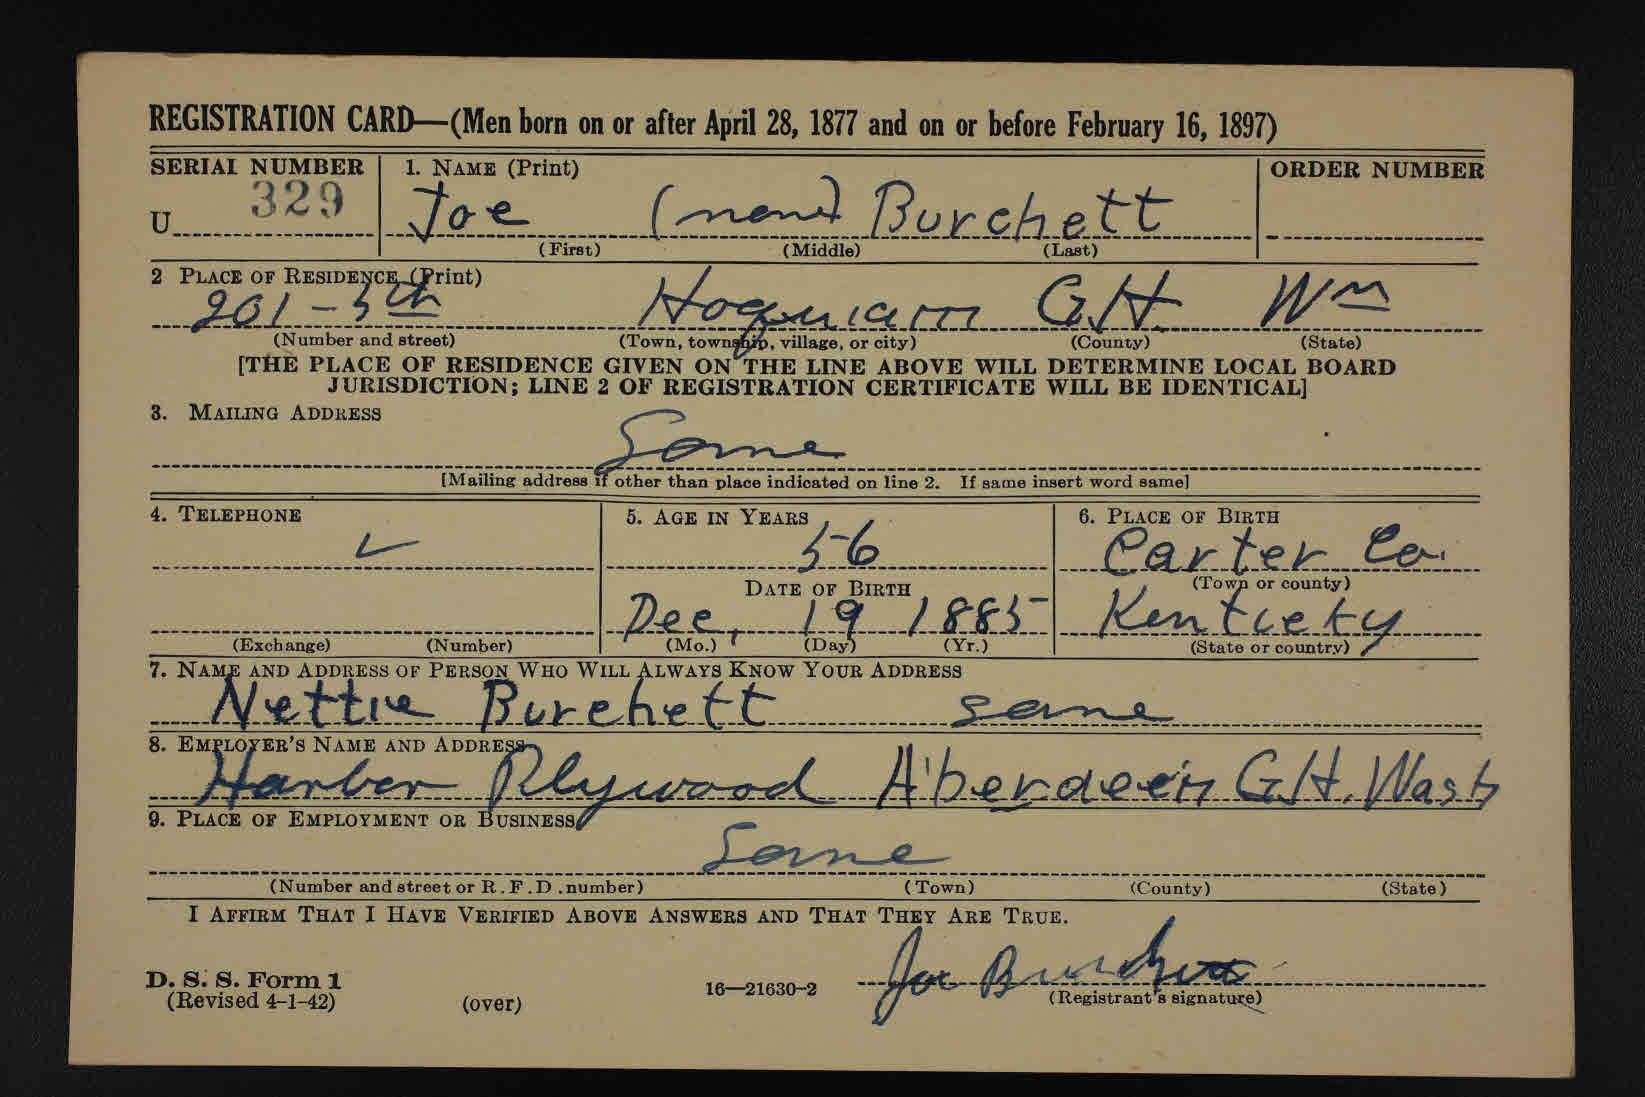 REGISTRATION CARD—(Men born on or after April 28, 1877 and on or before February 16, 1897)
SERIAL NUMBER 1. NAME (Print) ORDER NUMBER
U 329 Joe (none) Burchett
(First) (Middle) (Last)
2 PLACE OF RESIDENCE (Print)
201 - 5th Hoquiam G.H. Wn
(Number and street) (Town, township, village, or city) (County) (State)
[THE PLACE OF RESIDENCE GIVEN ON THE LINE ABOVE WILL DETERMINE LOCAL BOARD
JURISDICTION; LINE 2 OF REGISTRATION CERTIFICATE WILL BE IDENTICAL]
3. MAILING ADDRESS
Same
[Mailing address if other than place indicated on line 2. If same insert word same]
4. TELEPHONE 5. AGE IN YEARS 6. PLACE OF BIRTH
56 Carter Co.
DATE OF BIRTH (Town or county)
Dec, 19 1885 Kentucky
(Exchange) (Number) (Mo.) (Day) (Yr.) (State or country)
7. NAME AND ADDRESS OF PERSON WHO WILL ALWAYS KNOW YOUR ADDRESS
Nettie Burchett same
8. EMPLOYER'S NAME AND ADDRESS
Harbor Plywood Aberdeen G.H. Wash
9. PLACE OF EMPLOYMENT OR BUSINESS
Same
(Number and street or R.F.D. number) (Town) (County) (State)
I AFFIRM THAT I HAVE VERIFIED ABOVE ANSWERS AND THAT THEY ARE TRUE.
Joe Burchett
D. S. S. Form 1
(Revised 4-1-42) (over) 16—21630-2 (Registrant's signature)